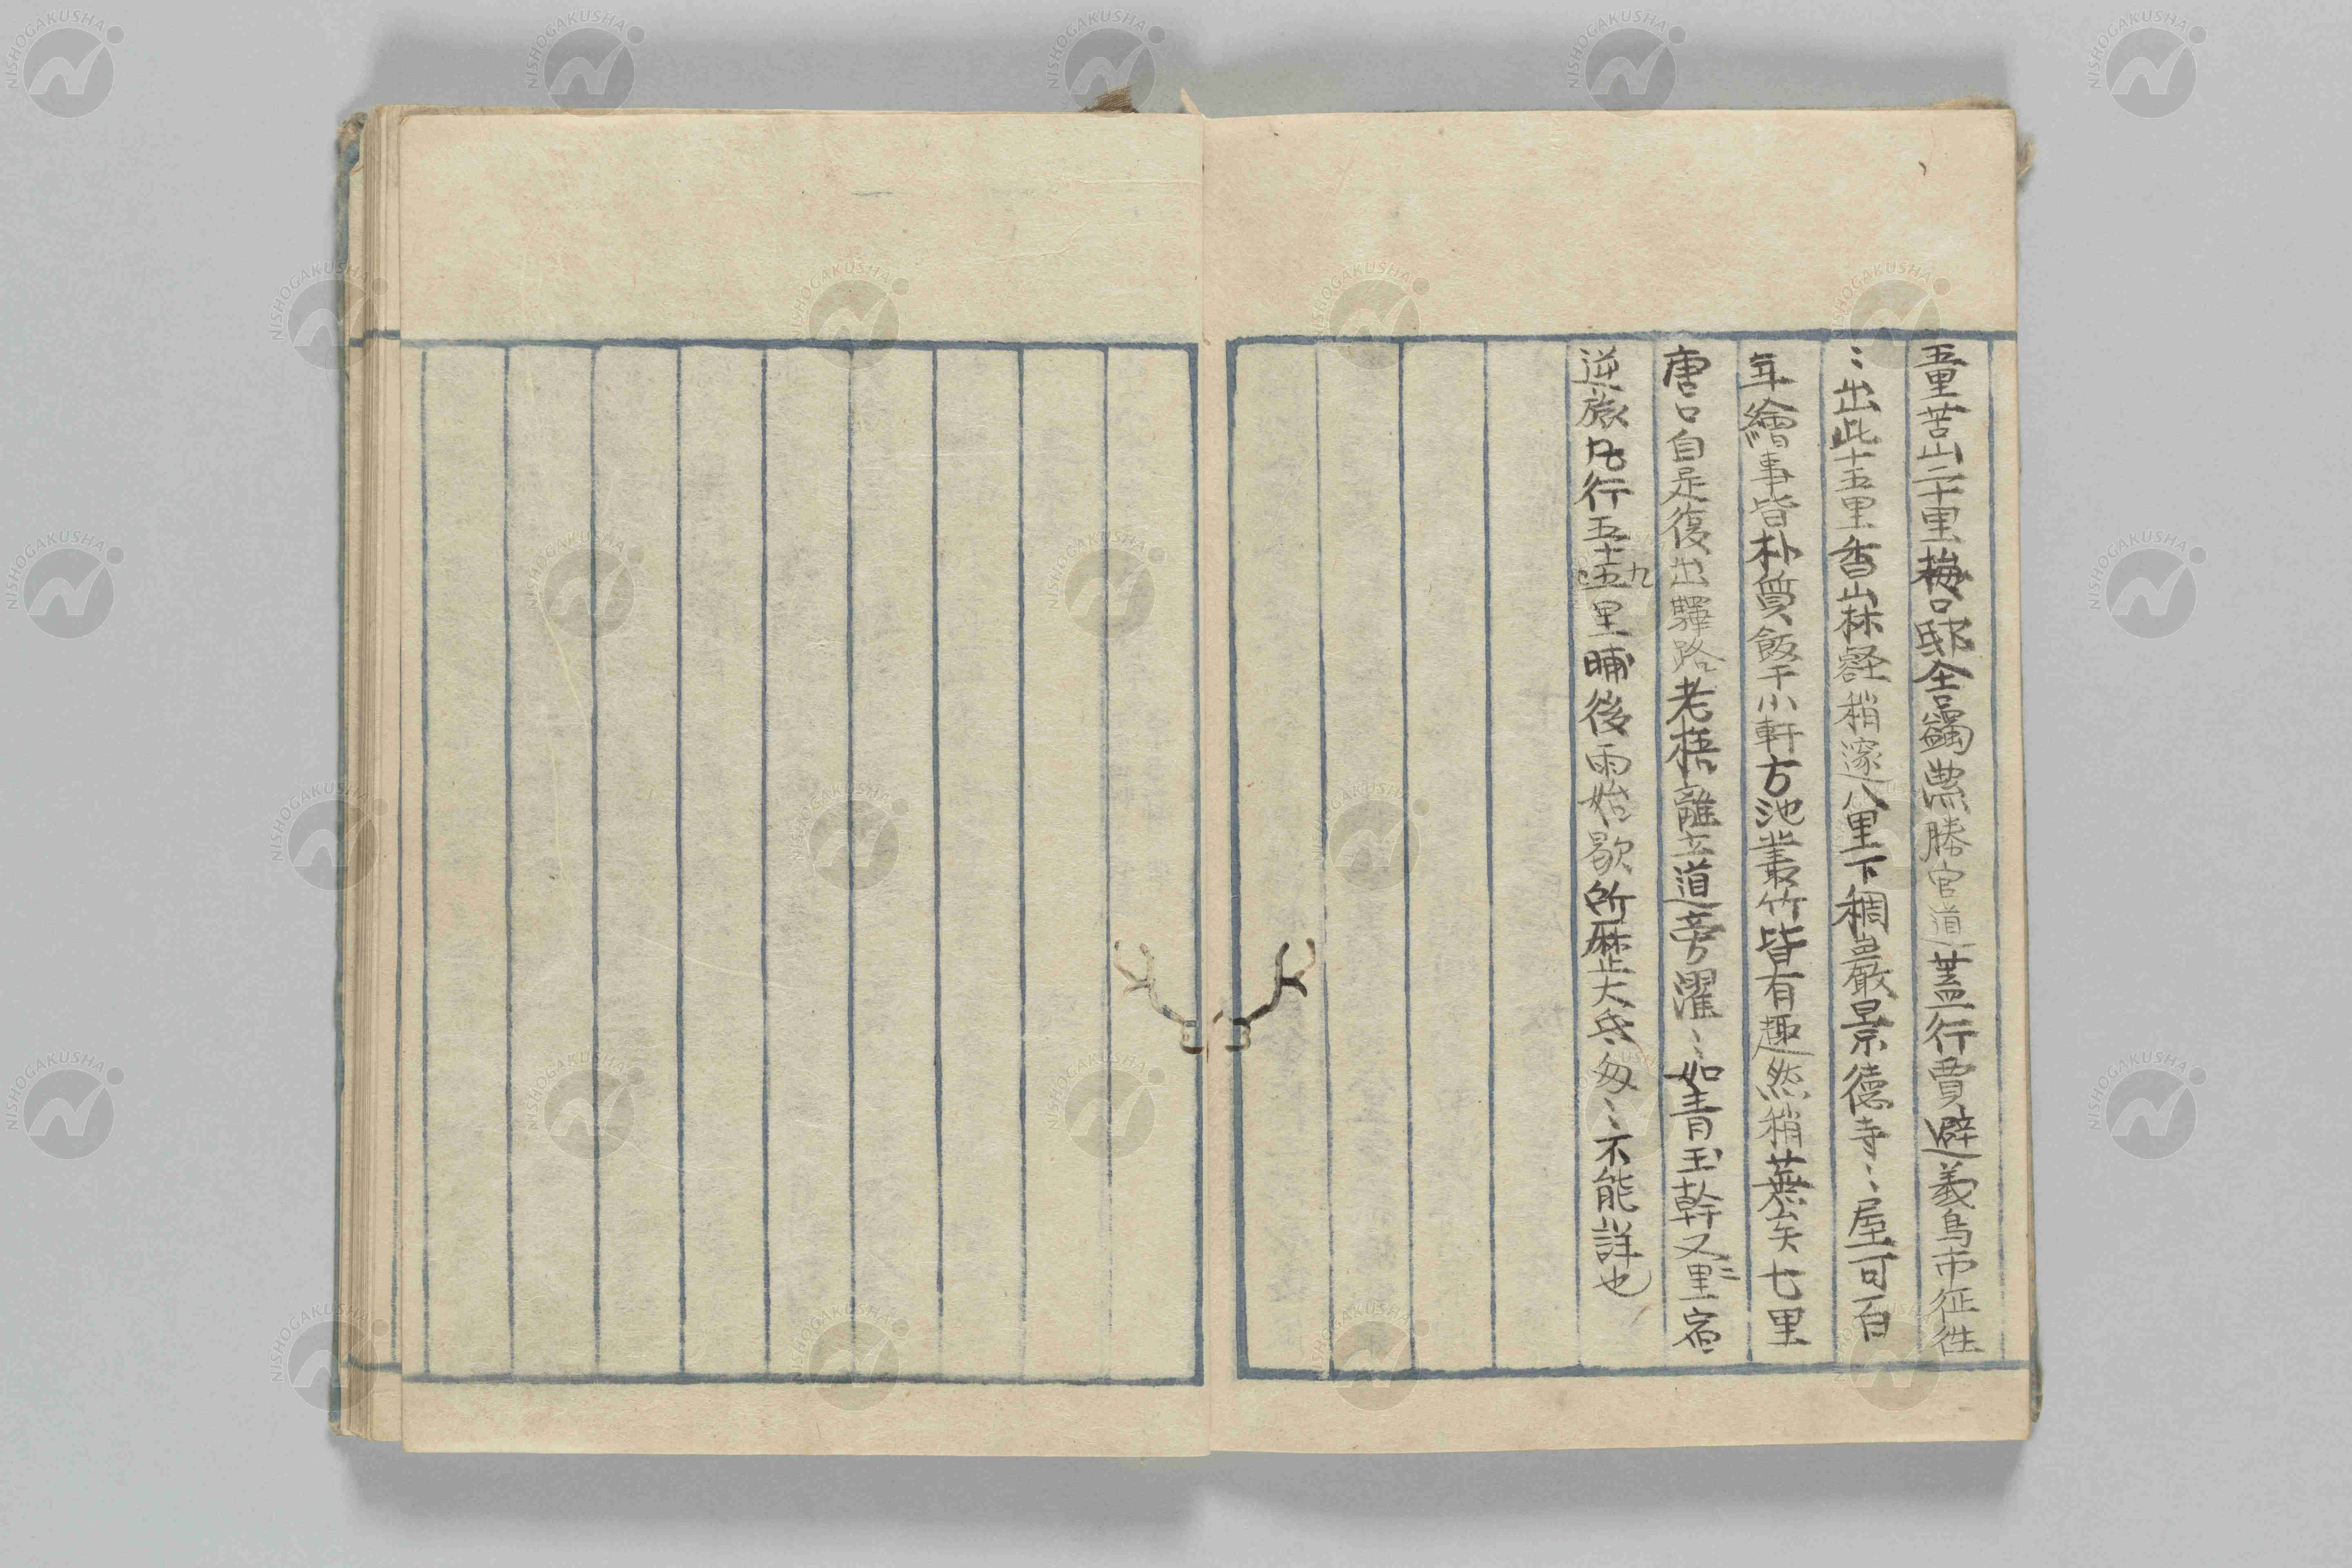 五里苦山二十里梅口邸舍蠲勝官道蓋行賈避義烏市征往
〻出此十五里香山林壑稍邃八里下稠巖景德寺〻屋可百
年繪事皆朴質飯于小軒方池叢竹皆有趣然稍蕪矣七里
唐口自是復出驛路老梧離立道旁濯〻如青玉幹又三里宿
逆旅凡行五十九里晡後雨始歇所歷大氐匆〻不能詳也
NISHOGAKUSHA